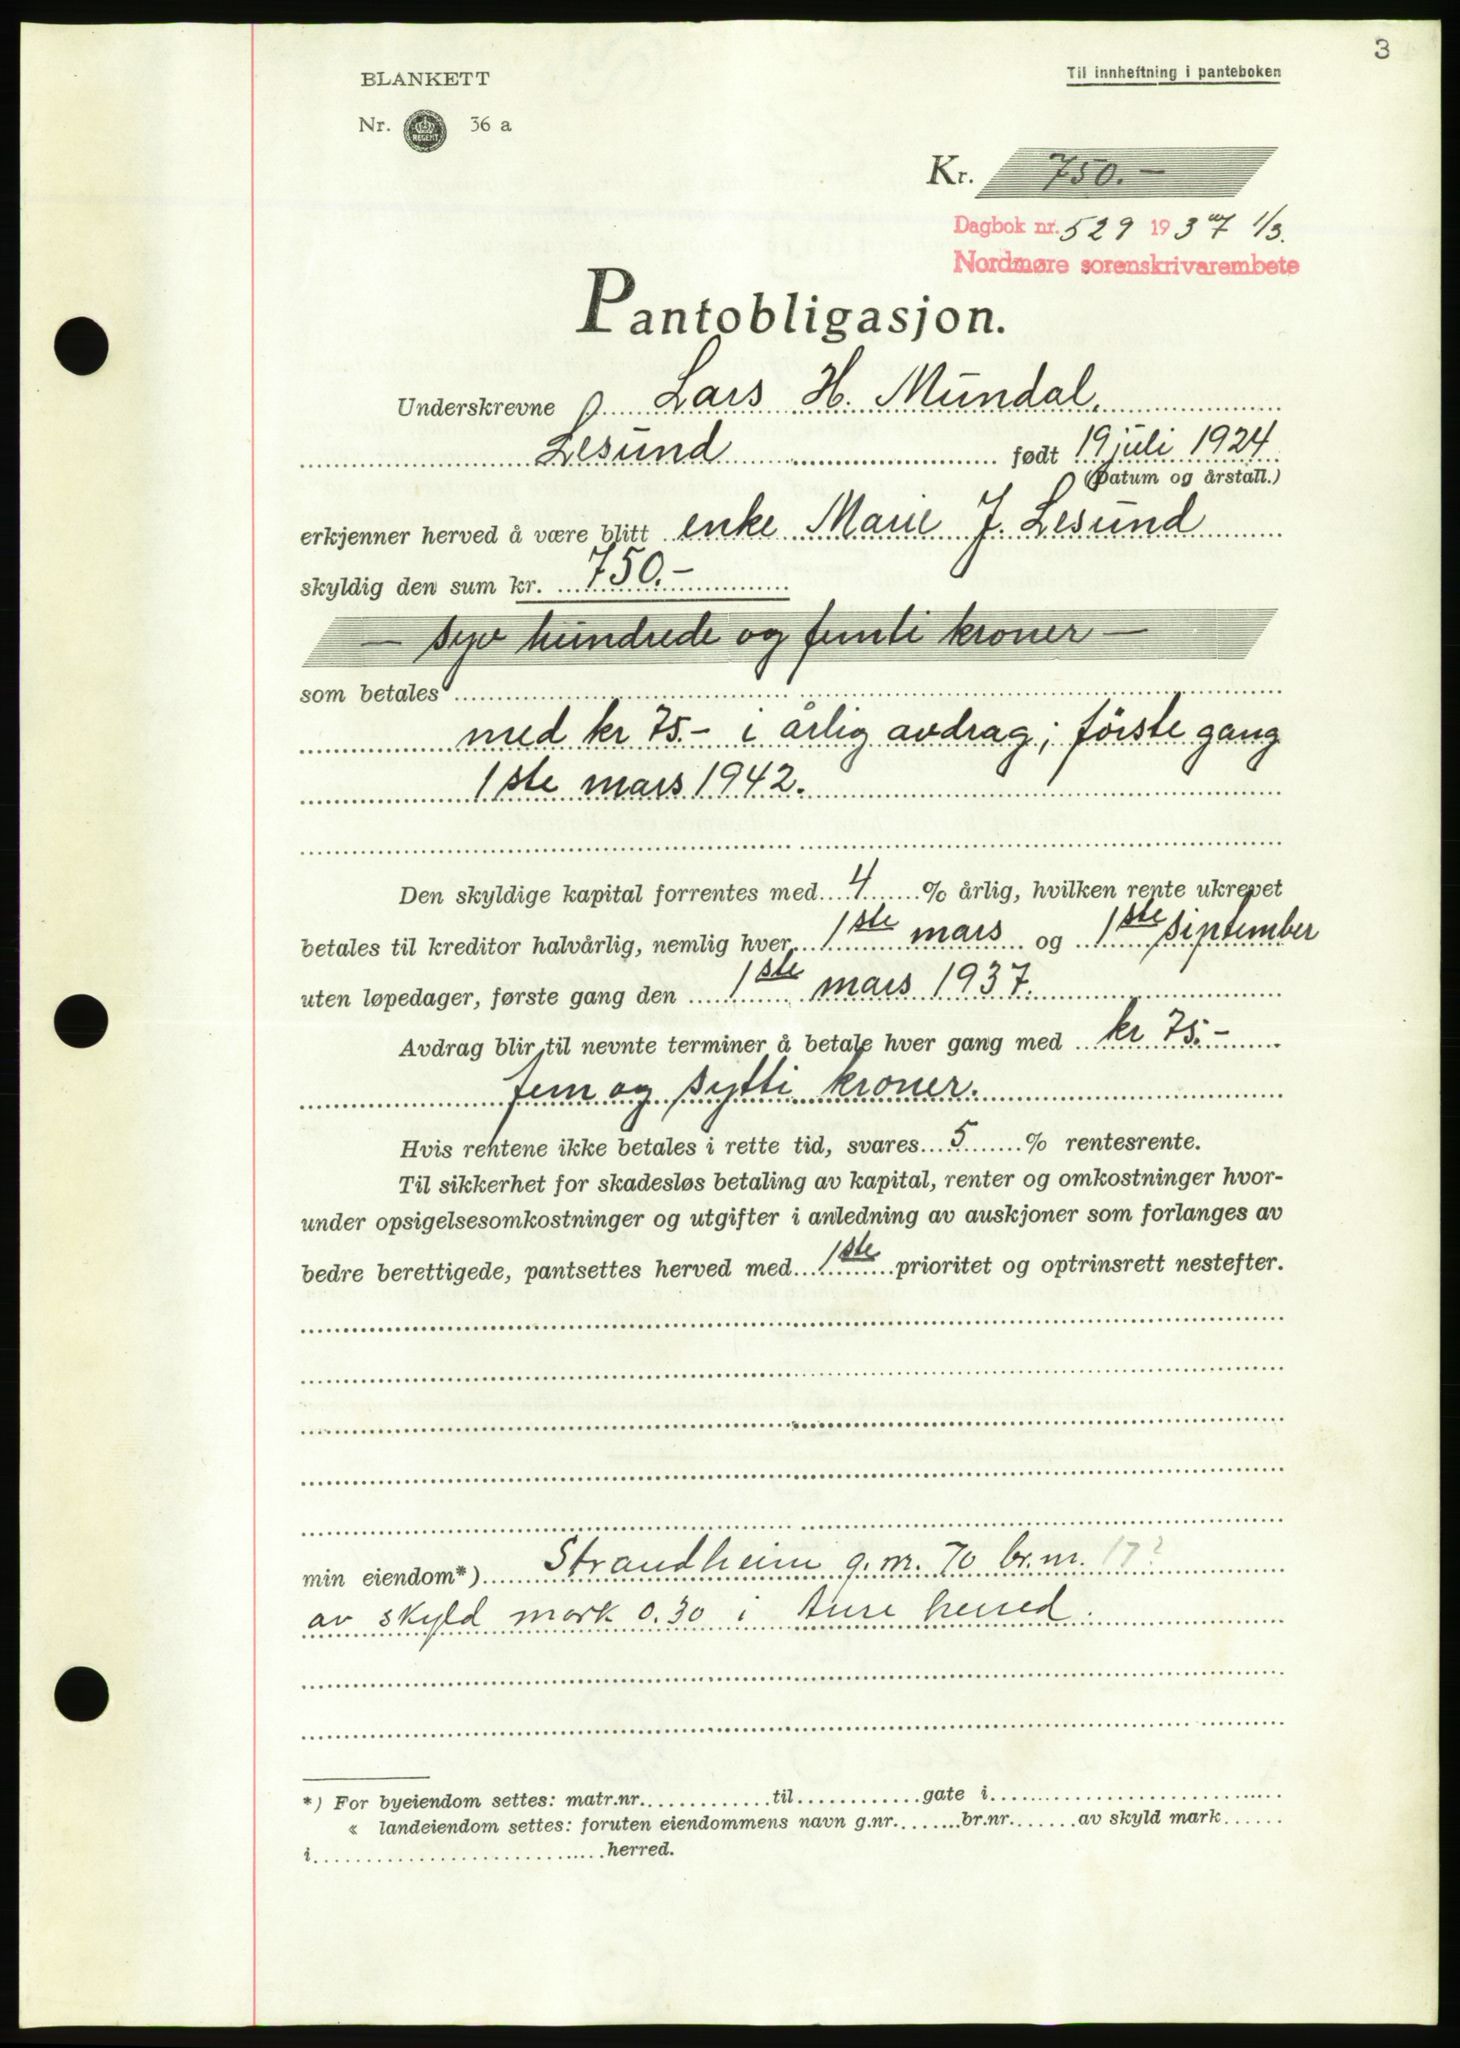 3
BLANKETT
Til innheftning i panteboken
Nr. REGENT 36 a
Kr. 750.-
Dagbok nr. 529 1937 1/3.
Nordmøre sorenskrivarembete
Pantobligasjon.
Underskrevne Lars H. Mundal,
Lesund født 19 juli 1924
(Datum og årstall.)
erkjenner herved å være blitt enke Marie J. Lesund
skyldig den sum kr. 750.-
- syv hundrede og femti kroner -
som betales
med kr 75.- i årlig avdrag; förste gang
1ste mars 1942.
Den skyldige kapital forrentes med 4 % årlig, hvilken rente ukrevet
betales til kreditor halvårlig, nemlig hver 1ste mars og 1ste september
uten løpedager, første gang den 1ste mars 1937.
Avdrag blir til nevnte terminer å betale hver gang med kr 75.-
fem og sytti kroner.
Hvis rentene ikke betales i rette tid, svares 5 % rentesrente.
Til sikkerhet for skadesløs betaling av kapital, renter og omkostninger hvor-
under opsigelsesomkostninger og utgifter i anledning av auskjoner som forlanges av
bedre berettigede, pantsettes herved med 1ste prioritet og optrinsrett nestefter.
min eiendom*) Strandheim g.nr. 70 br.nr. 17?
av skyld mark 0.30 i Aure herred.
*) For byeiendom settes: matr.nr. til gate i
« landeiendom settes: foruten eiendommens navn g.nr. br.nr. av skyld mark
i herred.